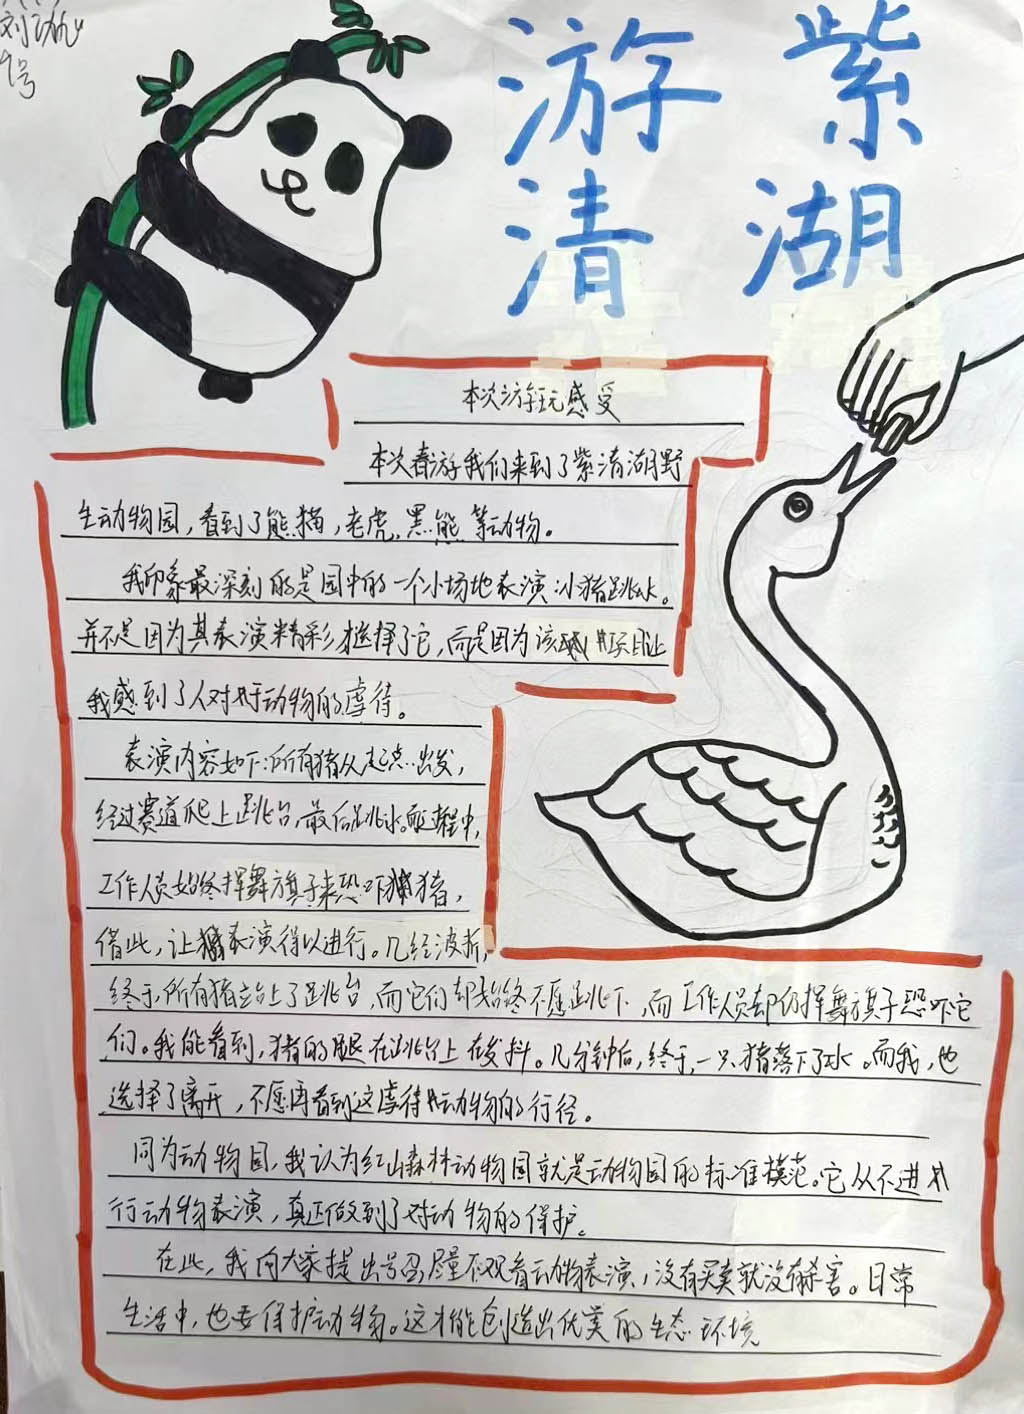 9号
游紫
清湖
本次游玩感受
本次春游我们来到了紫清湖野
生动物园，看到了熊猫，老虎，黑熊等动物。
我印象最深刻的是园中的一个小场地表演小猪跳水。
并不是因为其表演精彩才选择了它，而是因为该项目让
我感到了人对于动物的虐待。
表演内容如下：所有猪从起点出发，
经过赛道爬上跳台，最后跳水。过程中，
工作人员始终挥舞旗子来恐吓猪，
借此，让表演得以进行。几经波折，
终于，所有猪站上了跳台，而它们却始终不愿跳下，而工作人员却仍挥舞旗子恐吓它
们。我能看到，猪的腿在跳台上在发抖。几分钟后，终于，一只猪落下了水。而我，也
选择了离开，不愿再看到这虐待动物的行径。
同为动物园，我认为红山森林动物园就是动物园的标准模范。它从不进
行动物表演，真正做到了对动物的保护。
在此，我向大家提出号召尽量不观看动物表演，没有买卖就没有杀害。日常
生活中，也要保护动物。这才能创造出优美的生态环境